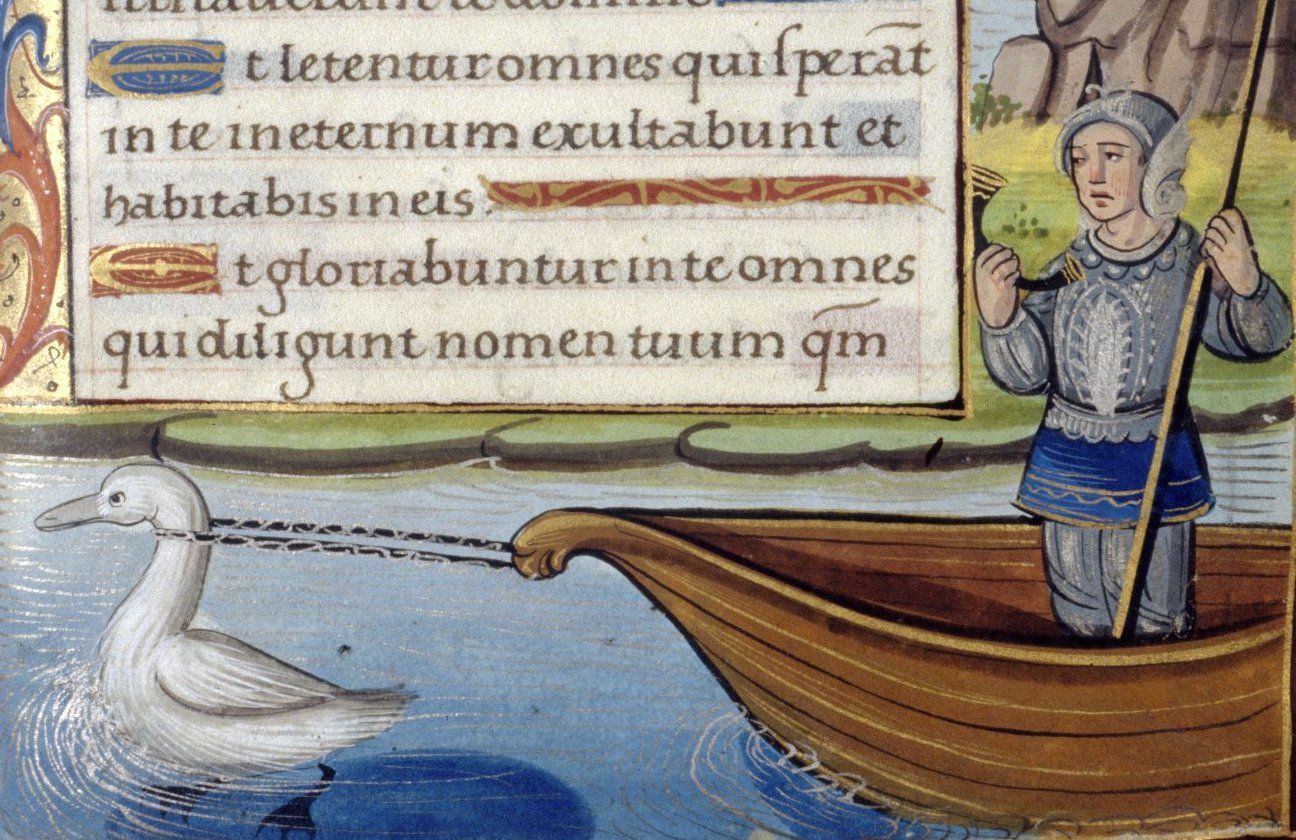 Et letentur omnes qui sperãt
in te in eternum exultabunt et
habitabis in eis.
Et gloriabuntur in te omnes
qui diligunt nomen tuum qm̃